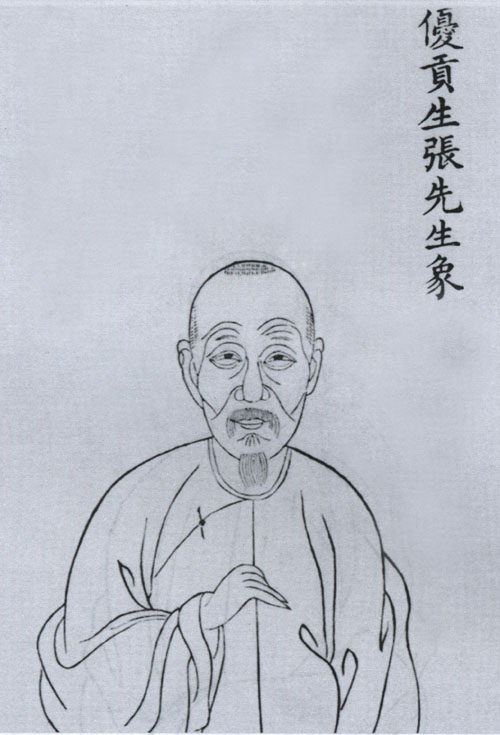 優貢生張先生象